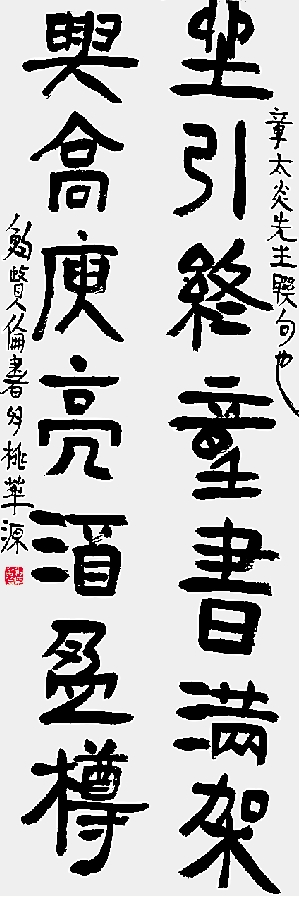 章太炎先生聯句也
坐引終童書滿架
興高庾亮酒盈樽
鮑賢倫書於桃華源